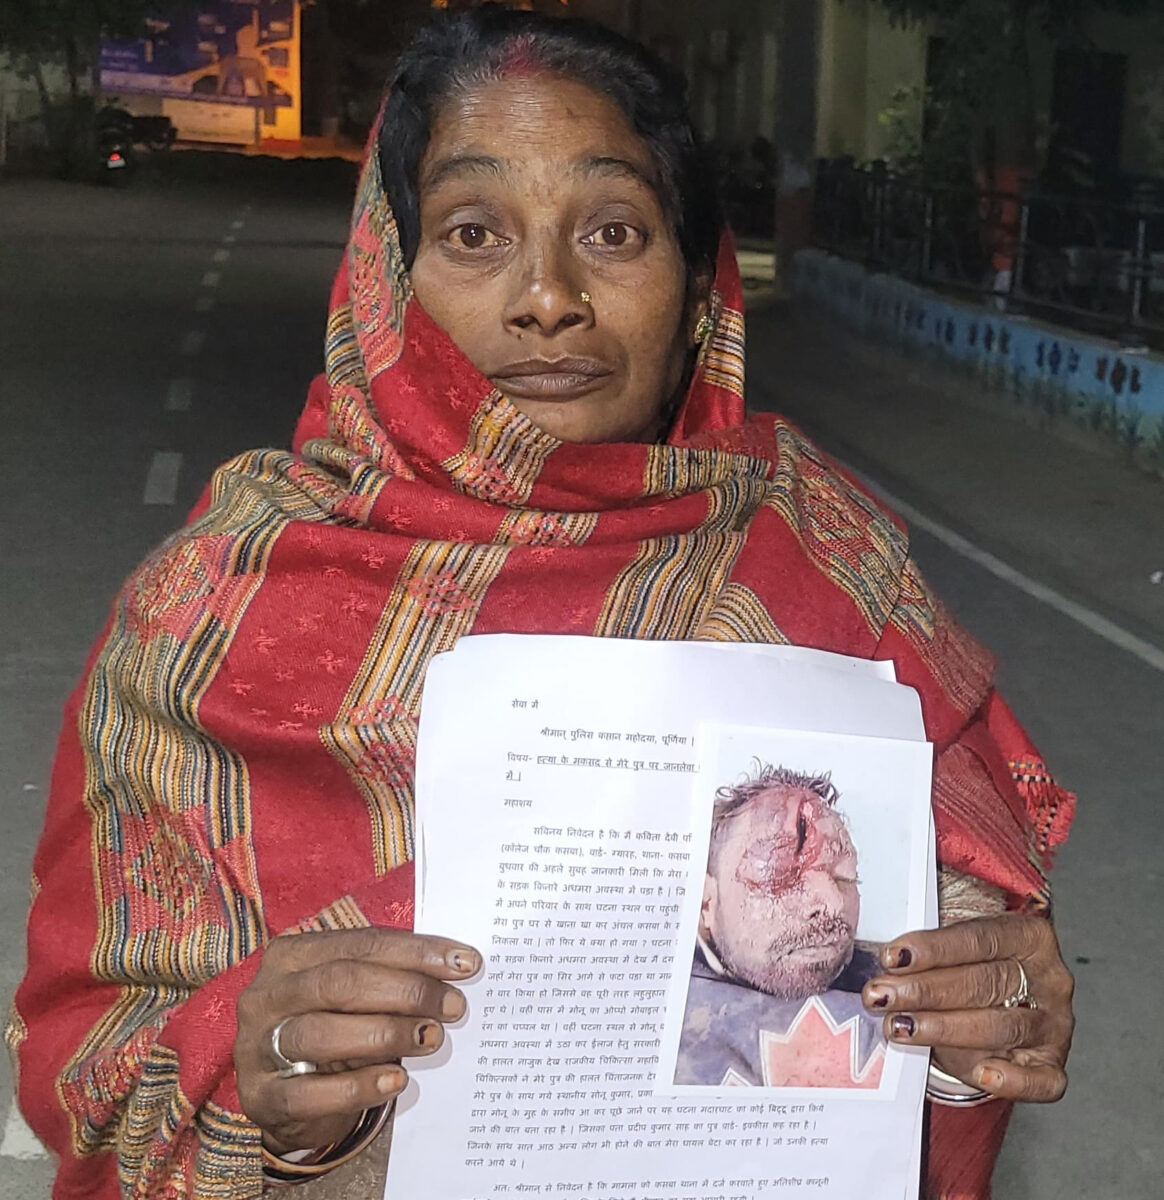 सेवा में
श्रीमान् पुलिस कप्तान महोदया, पूर्णिया |
विषय- हत्या के मकसद से मेरे पुत्र पर जानलेवा
में |
महाशय
सविनय निवेदन है कि मैं कविता देवी
(कॉलेज चौक कसबा), वार्ड- ग्यारह, थाना- कसबा
बुधवार की अहले सुबह जानकारी मिली कि मेरा
के सड़क किनारे अधमरा अवस्था में पड़ा है |
में अपने परिवार के साथ घटना स्थल पर पहुंची
मेरा पुत्र घर से खाना खा कर अंचल कसबा के
निकला था | तो फिर ये क्या हो गया ? घटना
को सड़क किनारे अधमरा अवस्था में देख मैं दंग
जहाँ मेरा पुत्र का सिर आगे से फटा पड़ा था
से वार किया हो जिससे वह पूरी तरह लहूलुहान
हुए थे | वही पास में मोनू का ओप्पो मोबाइल
रंग का चप्पल था | वहीं घटना स्थल से मोनू
अधमरा अवस्था में उठा कर ईलाज हेतु सरकारी
की हालत नाजुक देख राजकीय चिकित्सा
चिकित्सकों ने मेरे पुत्र की हालत चिंताजनक
मेरे पुत्र के साथ गये स्थानीय सोनू कुमार,
द्वारा मोनू के मुह के समीप आ कर पूछे जाने पर यह घटना मदारघाट का कोई बिट्टू द्वारा किये
जाने की बात बता रहा है | जिसका पता प्रदीप कुमार साह का पुत्र वार्ड- इक्कीस कह रहा है |
जिनके साथ सात आठ अन्य लोग भी होने की बात मेरा घायल बेटा कर रहा है | जो उनकी हत्या
करने आये थे |
अतः श्रीमान् से निवेदन है कि मामला को कसबा थाना में दर्ज करवाते हुए अतिशीघ्र कानूनी